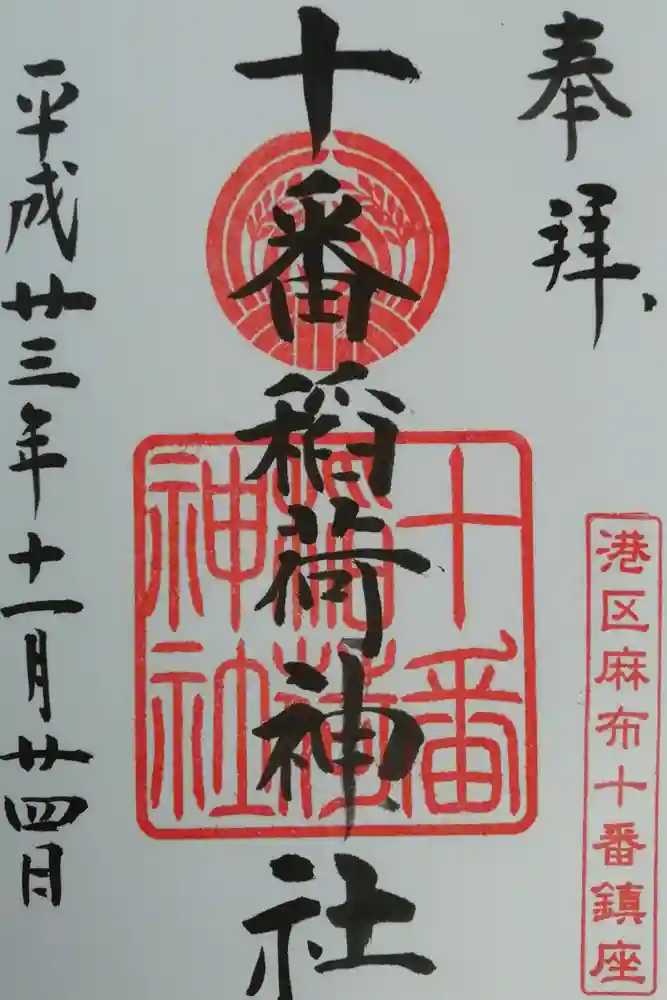 奉拝
港区麻布十番鎮座
十番稲荷神社
十番
稲荷
神社
平成廿三年十一月廿四日